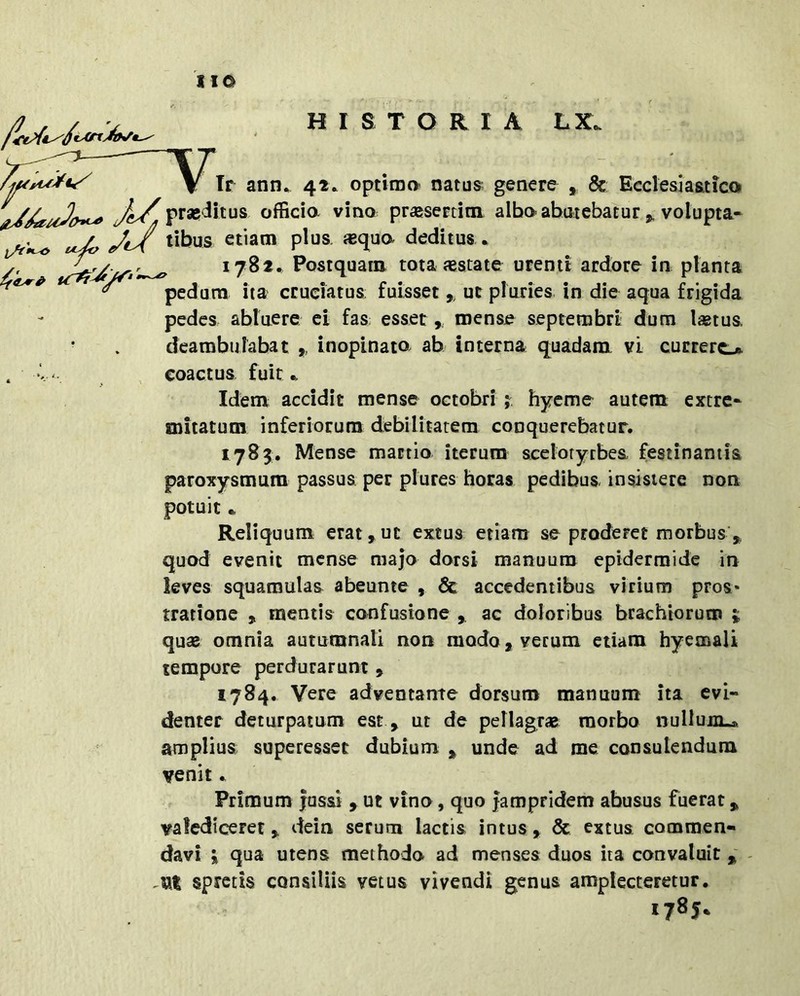 110
HISTORIA LX.
VIr ann. 42. optimo natus genere, & Ecclesiastico
præditus officio vino præsertim albo abutebatur, volupta-
tibus etiam plus æquo deditus.
1782. Postquam tota æstate urenti ardore in planta
pedum ita cruciatus fuisset, ut pluries in die aqua frigida
pedes abluere ei fas esset, mense septembri dum lætus
deambulabat, inopinato ab interna quadam vi currere
coactus fuit.
Idem accidit mense octobri; hyeme autem extre-
mitatum inferiorum debilitatem conquerebatur.
1783. Mense martio iterum scelotyrbes festinantis
paroxysmum passus per plures horas pedibus insistere non
potuit.
Reliquum erat, ut extus etiam se proderet morbus,
quod evenit mense majo dorsi manuum epidermide in
leves squamulas abeunte, & accedentibus virium pros-
tratione, mentis confusione, ac doloribus brachiorum;
quæ omnia autumnali non modo, verum etiam hyemali
tempore perdurarunt,
1784. Vere adventante dorsum manuum ita evi-
denter deturpatum est, ut de pellagræ morbo nullum
amplius superesset dubium, unde ad me consulendum
venit.
Primum jussi, ut vino, quo jampridem abusus fuerat,
valediceret, dein serum lactis intus, & extus commen-
davi; qua utens methodo ad menses duos ita convaluit,
ut spretis consiliis vetus vivendi genus amplecteretur.
1785.